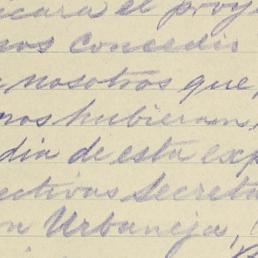 icara el proye
nos concedio
nosotros que,
nos hubieran
dia de esta exp
ectivas Secreta
n Urbaneja,